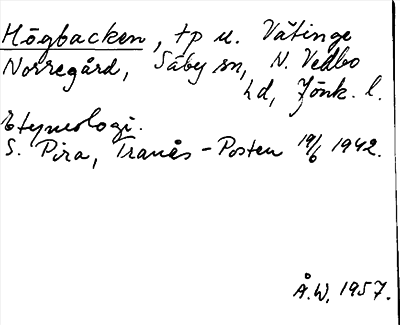 Högbacken, tp u. Vätinge
Norregård, Säby sn, N. Vedbo
hd, Jönk. l.
Etymologi.
S. Pira, Tranås-Posten 19/6 1942.
Å.W. 1957.